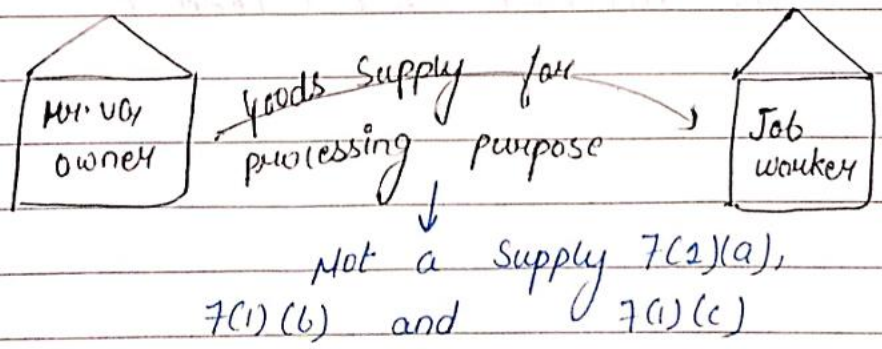 Mr. VG,
owner
goods supply for
processing purpose
Job
worker
Not a supply 7(1)(a),
7(1)(b) and 7(1)(c)